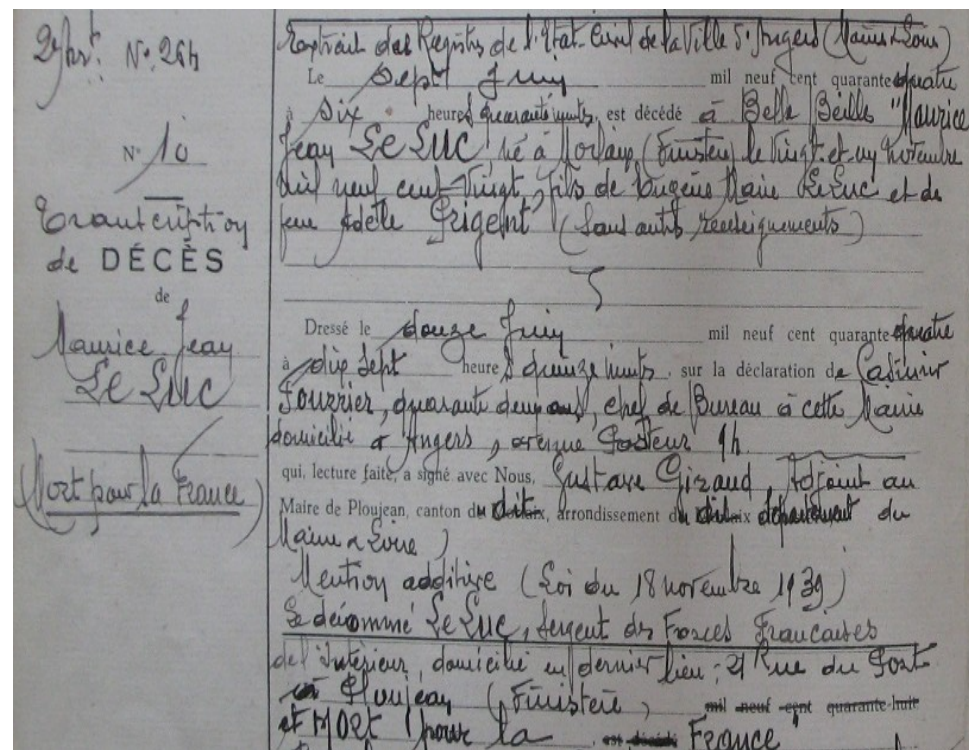 N° 264
N° 10
Transcription
de DÉCÈS
de
Maurice Jean
LE LUC
(Mort pour la France)
Extrait des Registres de l'Etat-Civil de la Ville d'Angers (Maine & Loire)
Le sept Juin mil neuf cent quarante quatre
à six heures quarante minutes, est décédé à Belle Beille "Maurice
Jean LE LUC" né à Morlaix (Finistère) le vingt-et-un Novembre
mil neuf cent vingt, fils de Eugène Marie LE LUC et de
feue Adèle Prigent (Sans autres renseignements)
Dressé le douze Juin mil neuf cent quarante quatre
à dix sept heures quinze minutes, sur la déclaration de Casimir
Fourrier, quarante deux ans, chef de Bureau à cette Mairie
domicilié à Angers, avenue Pasteur
qui, lecture faite, a signé avec Nous, Gustave Giraud, Adjoint au
Maire de Ploujean, canton du dit, arrondissement du dit département du
Maine & Loire)
Mention additive (Loi du 18 novembre 1939)
Le dénommé LE LUC, Sergent des Forces Françaises
de l'Intérieur, domicilié en dernier lieu : 21 Rue du Port
à Ploujean (Finistère) mil neuf cent quarante-huit
est Mort pour la est décédé France"